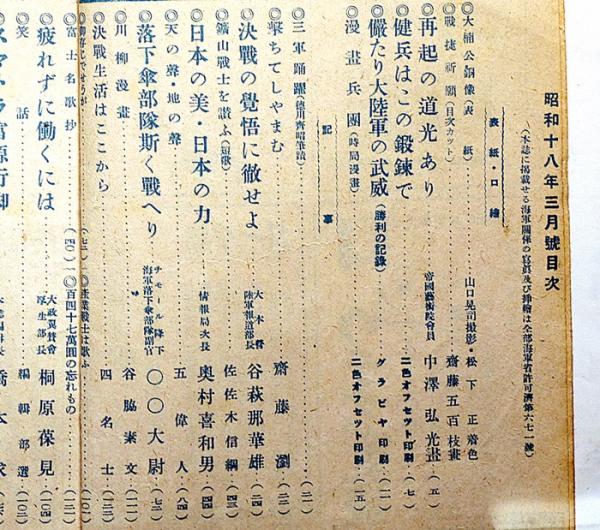 昭和十八年三月號目次
(本誌に掲載せる海軍關係の寫眞及び挿繪は全部海軍省許可濟第六七一號)
表紙・口繪
◇大楠公銅像(表紙)……山口晃司撮影・松下正着色
◇戰捷祈願(目次カット)……齋藤五百枝畫
◇再起の道光あり……帝國藝術院會員 中澤弘光畫…(五)
◇健兵はこの鍛鍊で……二色オフセット印刷…(七)
◇儼たり大陸軍の武威(勝利の記錄)……グラビヤ印刷…(一)
◇漫畫兵團(時局漫畫)……二色オフセット印刷…(一五)
記事
◇三軍踊躍(德川齊昭筆蹟)……(二一)
◇擊ちてしやまむ……齋藤瀏…(二二)
◇決戰の覺悟に徹せよ……大本營陸軍報道部長 谷萩那華雄…(二四)
◇鑛山戰士を讃ふ(短歌)……佐佐木信綱…(四三)
◇日本の美・日本の力……情報局次長 奥村喜和男…(四四)
◇天の聲・地の聲……五偉人…(八四)
◇落下傘部隊斯く戰へり……チモール降下海軍落下傘部隊副官 〇〇大尉…(七三)
◇川柳漫畫……谷脇素文…(一一一)
◇決戰生活はここから……四名士…
◎御存じでせうが……(七二)◎產業戰士は歌ふ……(一〇六)
◎富士名歌抄……(四〇)◎百四十七萬圓の忘れもの……(一三一)
◇疲れずに働くには……大政翼贊會厚生部長 桐原葆見…(一〇四)
◇笑話……編輯部選…(一〇三)